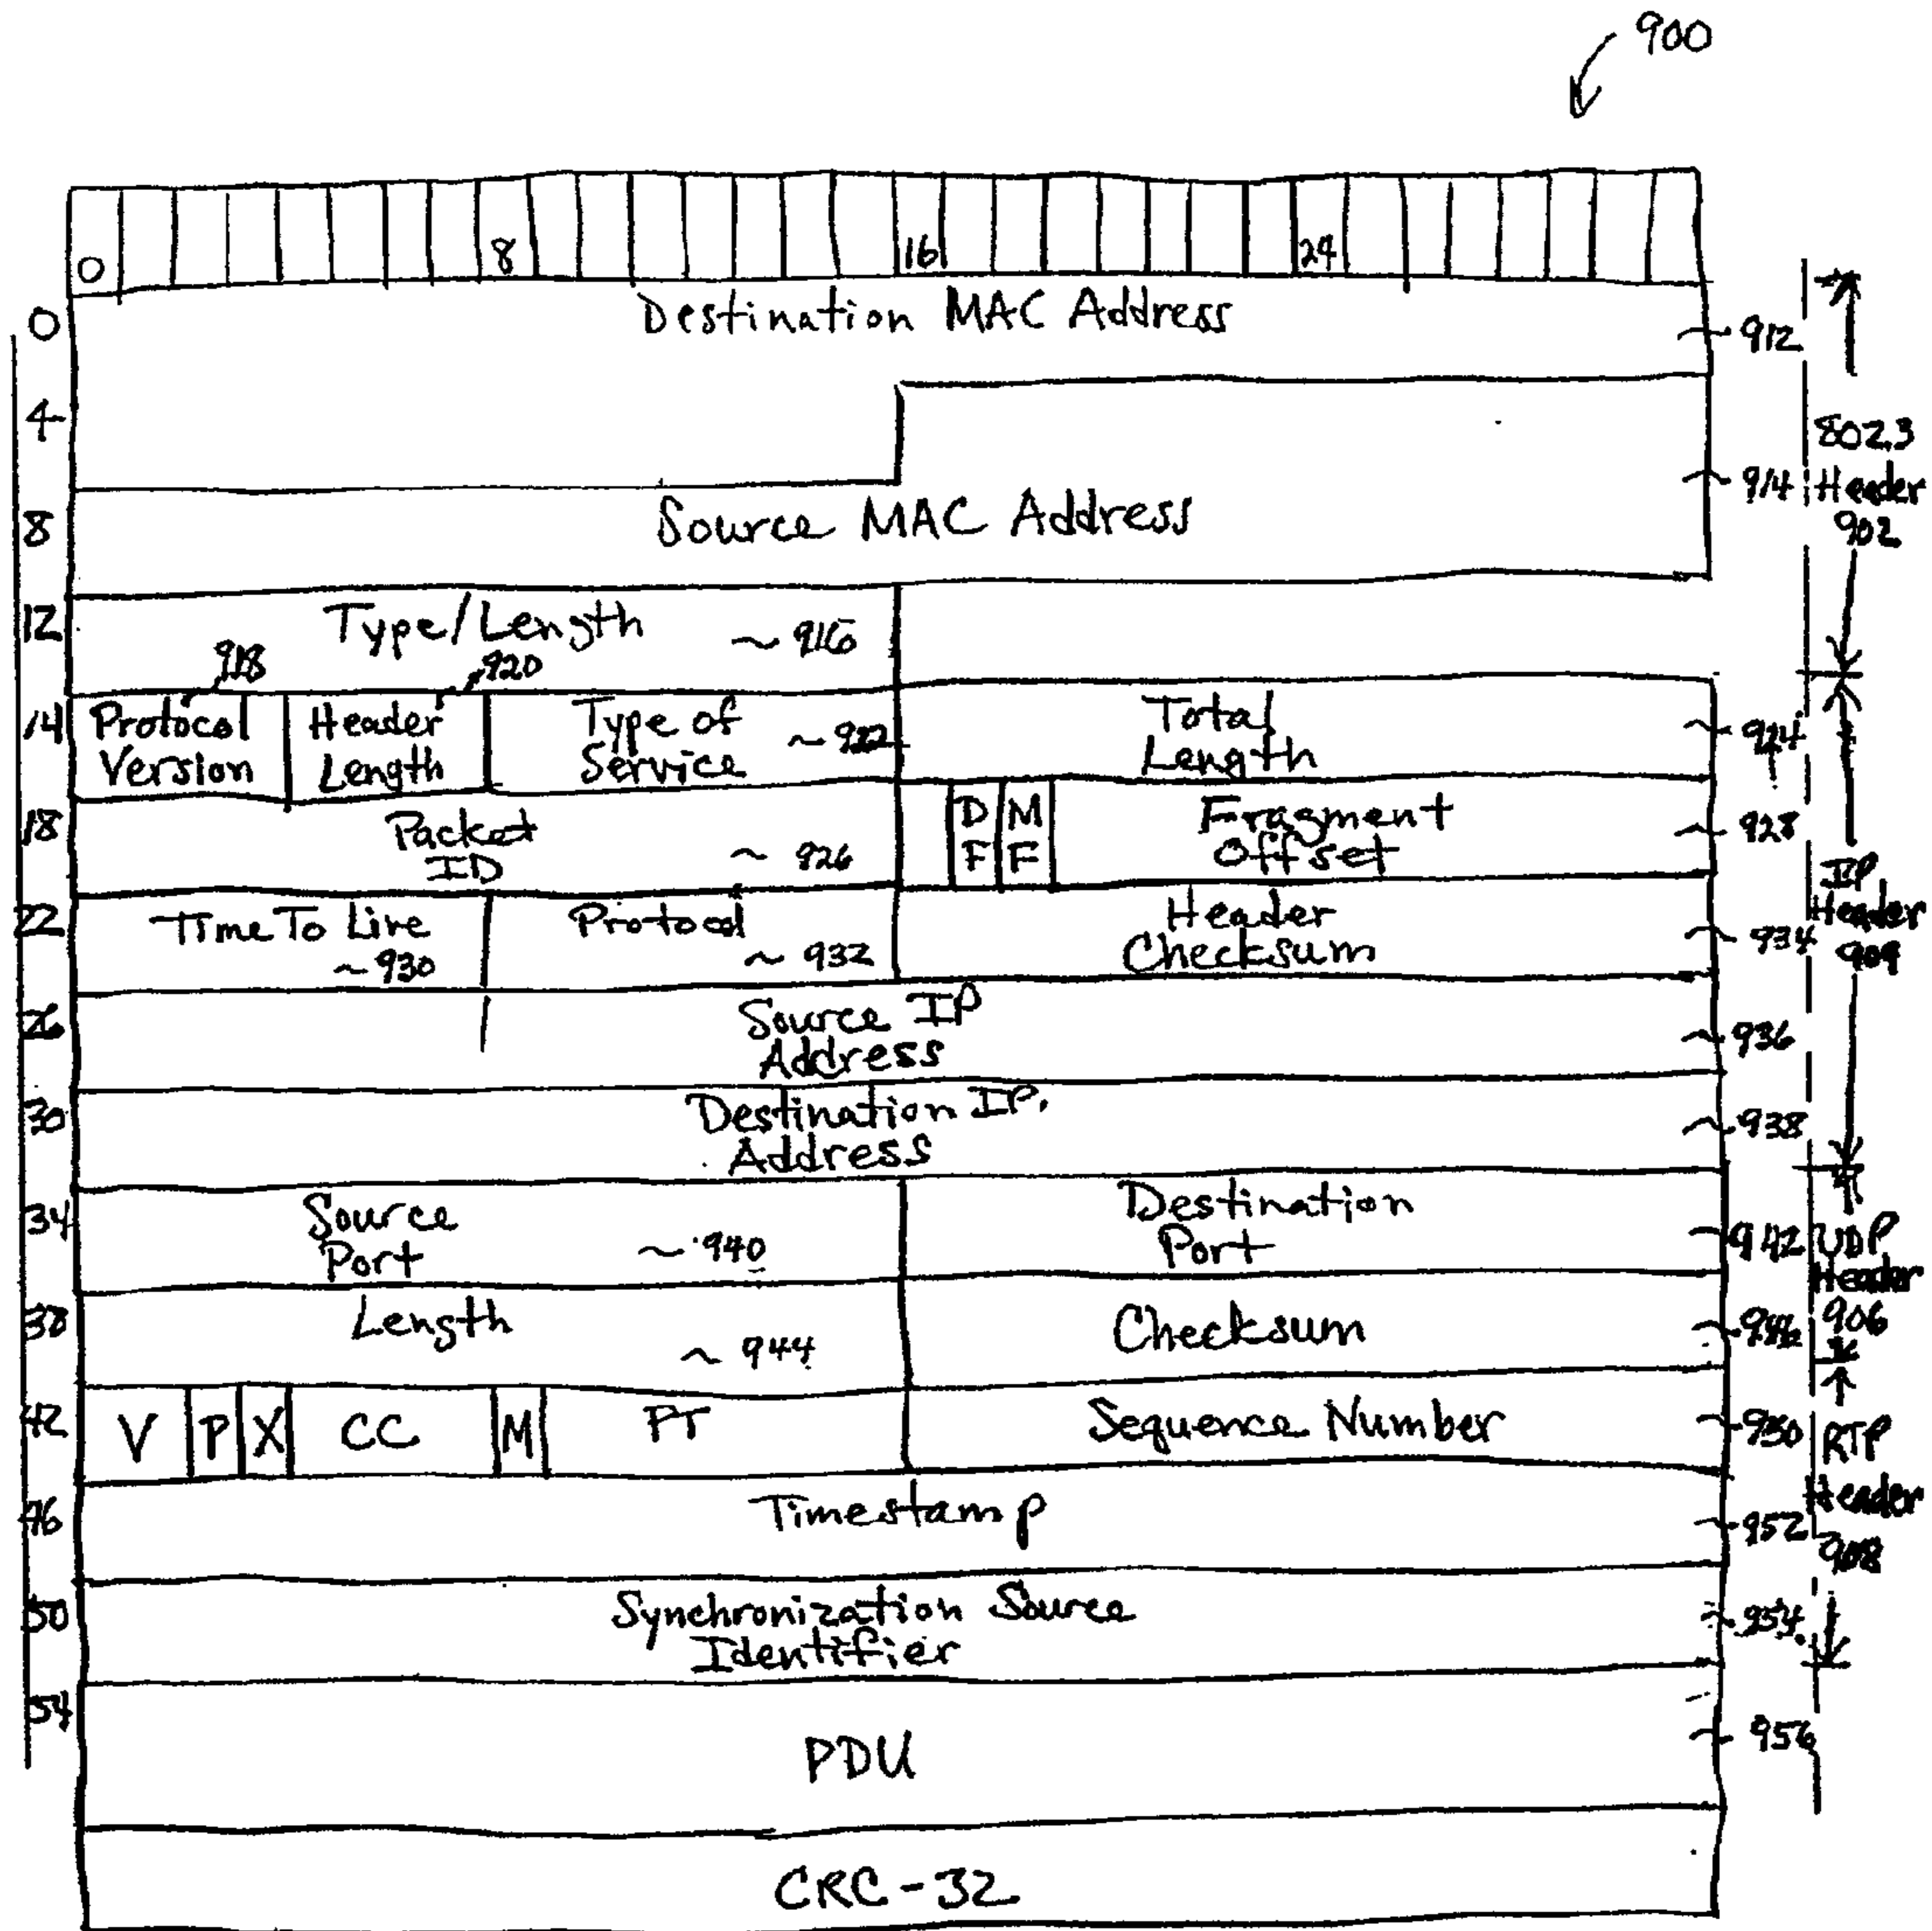 900
0 8 16 24
0 Destination MAC Address 912
4
802.3
914 Header
8 Source MAC Address 902
12 Type/Length ~ 916
918 920
14 Protocol Version Header Length Type of Service ~ 922 Total Length 924
18 Packet ID ~ 926 D F M F Fragment Offset 928
IP Header
22 Time To Live ~ 930 Protocol ~ 932 Header Checksum 934
26 Source IP Address 936
30 Destination IP Address 938
34 Source Port ~ 940 Destination Port 942 UDP Header
38 Length ~ 944 Checksum 946 906
42 V P X CC M PT Sequence Number 950 RTP
Header
46 Timestamp 952 908
50 Synchronization Source Identifier 954
54
PDU 956
CRC-32